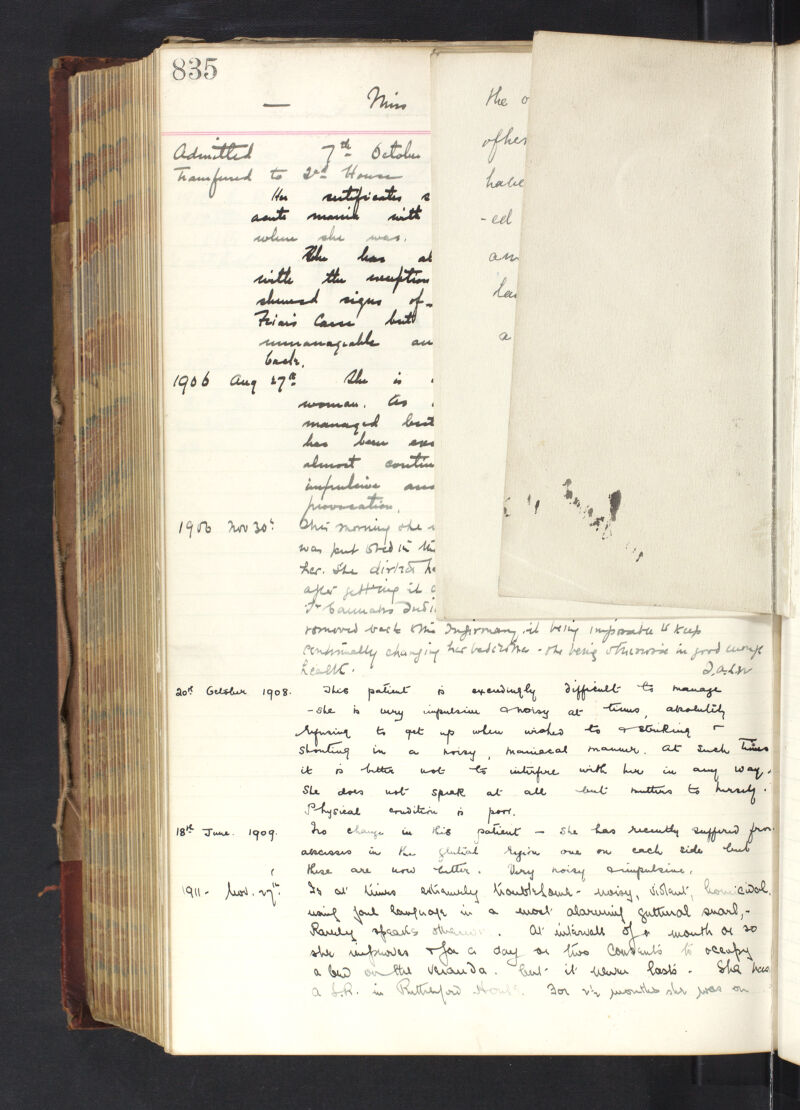 835
— Miss
Admitted 7th October
Transferred to 2nd House
Her certificates s
acute mania with
where she was.
She has al
with the exception
shewed signs of
Friars Carse but
unmanageable an
back.
1906 Aug 27th She is
woman. As
managed but
has been exc
almost contin
impulsive and
provocation.
1906 Nov 30th This morning she
was put to bed in the
her. She dirtied he
after getting it
Cannabis Indi
removed back to the Infirmary, it being impossible to keep
continually changing her bedclothes - she being otherwise in good enough
health.
20th October 1908. This patient is exceedingly difficult to manage
- she is very impulsive & noisy at times, absolutely
refusing to get up when wished to & striking &
shouting in a noisy, maniacal manner. At such times
it is better not to interfere with her in any way.
She does not speak at all but mutters to herself.
Physical condition is poor.
18th June. 1909. No change in this patient — she has recently suffered from
abscesses in the gluteal region one on each side but
these are now better. Very noisy & impulsive.
1911 - Nov. 27th. Is at times extremely troublesome - noisy, violent, homicidal,
using foul language in a most alarming guttural snarl,-
Rarely speaks otherwise. At intervals of a month or so
she improves & for a day or two consents to occupy
a bed on the veranda. But it never lasts. She has
a S.R. in Rutherford House. For 2½ months she was on
the o
of her
have
-ed
an
las
a